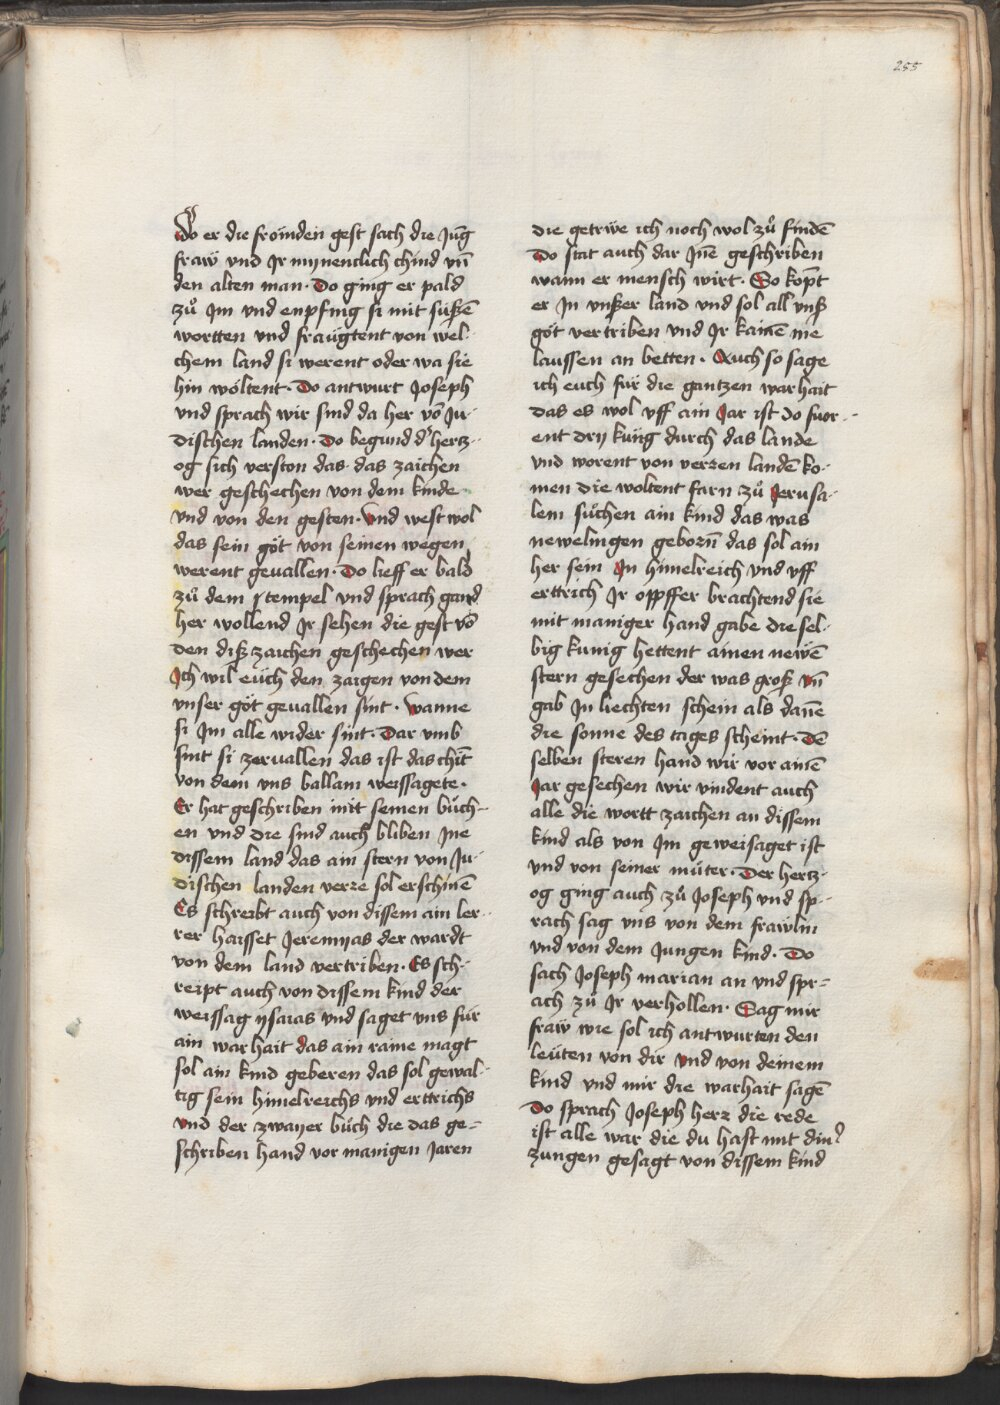 255
Do er die fröinden gest sach die Jūg
fraẅ vnd Jr mynenclich chind vn̄
den alten man · Do ging er pald
zů Jm vnd enpfing si mit süßē
wortten vnd fraügtent von wel-
chem land si werent oder wa sie
hin wöltent · Do antwurt Joseph
vnd sprach wir sind da her vō Ju-
dischen landen · Do begund d' hertz-
og sich verston das das zaichen
wer geschechen von dem kinde
vnd von den gesten · Vnd west wol
das sein göt von seinen wegen
werent geuallen · Do lieff er bald
zů dem tempel vnd sprach gand
her wollend Jr sehen die gest vō
den diß zaichen geschechen wer
Jch wil eüch den zaigen von dem
vnser göt geuallen sint · Wanne
si Jm alle wider sint · Dar vmb
sint si zeruallen das ist das chīt
von dem vns ballam weissagete ·
Er hat geschriben mit seinen büch-
en vnd die sind auch bliben Jne
dissem land das ain stern von Ju-
dischen landen verre sol erschinē
Es schreibt auch von dissem ain ler-
rer haisset Jeremyas der wardt
von dem land vertriben · Es sch-
reipt auch von dissem kind der
weissag ysaias vnd saget vns für
ain warhait das ain raine magt
sol ain kind geberen das sol gewal-
tig sein himelreichs vnd erttrichs
vnd der zwayer büch die das ge-
schriben hand vor manigen Jaren
die getrẅe ich noch wol zů findē
Do stat auch dar Jnē geschriben
wann er mensch wirt · So kop̄t
er Jn vnßer land vnd sol all vnß
göt vertriben vnd Jr kainē nie
laussen an betten · Auch so sage
ich euch für die gantzen warhait
das es wol vff ain Jar ist do fuor-
ent dry küng durch das lande
vnd worent von verren landē ko-
men die woltent farn zů Jerusa-
lem sůchen ain kind das was
newelingen geborn̄ das sol ain
her sein Jn himelreich vnd vff
erttrich Jr oppffer brachtend sie
mit maniger hand gabe die sel-
big kunig hettent ainen newē
stern gesechen der was groß vn̄
gab Jn liechten schein als dan̄e
die sonne des tages scheint · Dē
selben steren hand wir vor ainē
Jar gesechen wir vindent auch
alle die wortt zaichen an dissem
kind als von Jm geweisaget ist
vnd von seiner müter · Der hertz-
og ging auch zů Joseph vnd sp-
rach sag vns von dem frawlin
vnd von dem Jungen kind · Do
sach Joseph marian an vnd spr-
ach zů Jr verhollen · Sag mir
fraw wie sol ich antwurten den
leüten von dir vnd von deinem
kind vnd mir die warhait sagē
Do sprach Joseph herr die rede
ist alle war die du hast mit din'
zungen gesagt von dissem kind